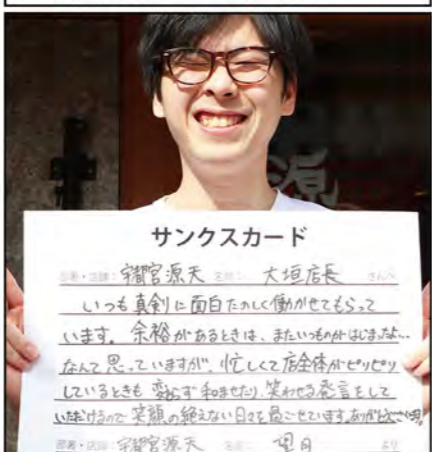 サンクスカード
部署・店舗: 宇都宮源天 名前: 大垣店長 さんへ
いつも真剣に面白たのしく働かせてもらって
います。余裕があるときは、またいつものがはじまったよ…
なんて思っていますが、忙しくて店全体がピリピリ
しているときも変わらず和ませたり、笑わせる発言をして
いただけるので笑顔の絶えない日々を過ごせています。ありがとうございます。
部署・店舗: 宇都宮源天 名前: 望月 より
源